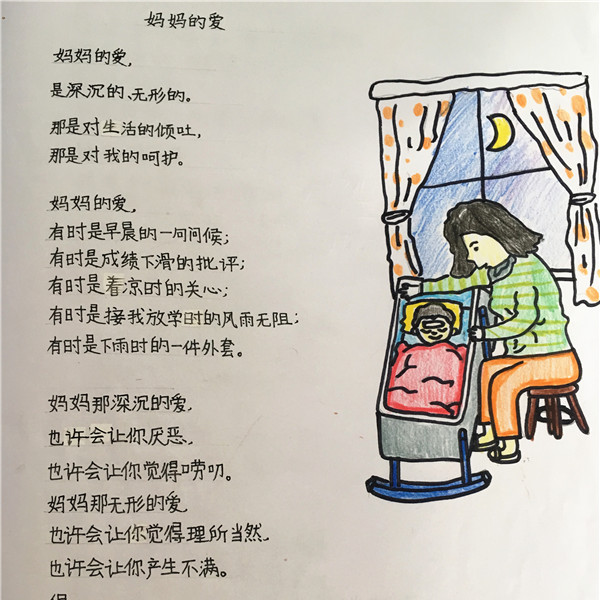 妈妈的爱
妈妈的爱,
是深沉的、无形的。
那是对生活的倾吐,
那是对我的呵护。
妈妈的爱,
有时是早晨的一句问候;
有时是成绩下滑的批评;
有时是着凉时的关心;
有时是接我放学时的风雨无阻;
有时是下雨时的一件外套。
妈妈那深沉的爱,
也许会让你厌恶,
也许会让你觉得唠叨。
妈妈那无形的爱,
也许会让你觉得理所当然,
也许会让你产生不满。